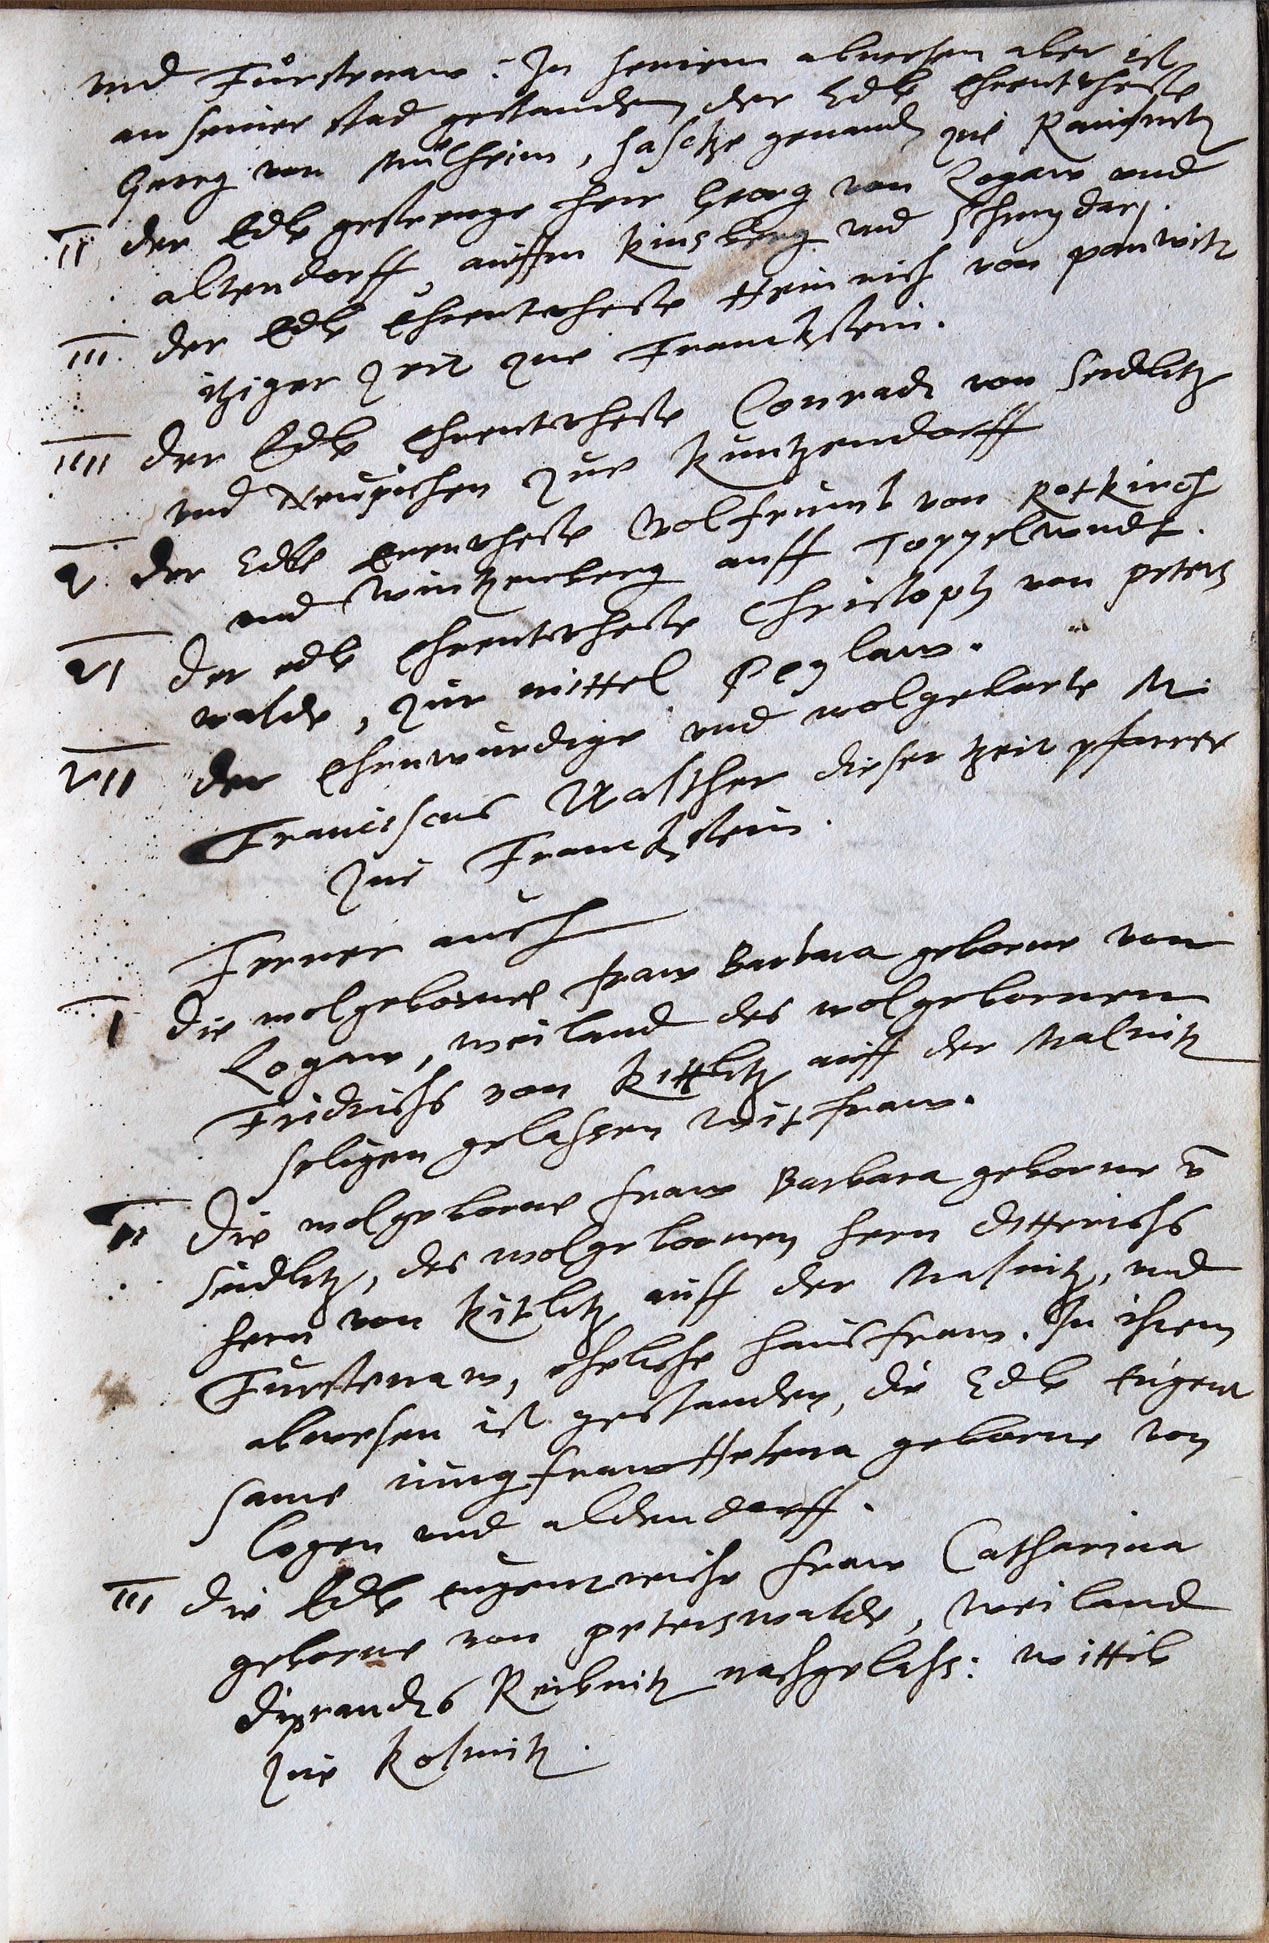 vnd Fürstenaw: In seinem abwesen aber ist
an seiner stad gestanden der Edle Ehrentvheste
Georg von Mülheim, Laschke genand zue
II der Edle gestrenge herr Georg von Logaw vnd
altendorff, auffm Kinsberg vnd
III der Edle Ehrentvheste Heinrich von panwitz
itziger Zeit zue Franckstein.
IIII der Edle Ehrentvheste Conradt von Seidlitz
vnd zue Kuntzendorff
V der Edle Erenvheste Wolfrumb von Rotkirch
vnd auff
VI der edle Ehrentvheste Christoph von peters
walde, zur mittel Peylaw.
VII der Ehrnwürdige vnd wolgelarte M.
Franciscus Walther dieser Zeit pfarrer
zue Franckstein.
Ferner auch
I die wolgeborne fraw Barbara geborne von
Logaw, weiland des wolgebornen
Fridrichs von Kittlitz auff der Malnitz
seligen gelassen Witfraw.
II Die wolgeborne fraw Barbara geborne v
Seidlitz, des wolgebornen hern Ditterichs
hern von Kitlitz auff der Malnitz, vnd
Furstenaw, ehliche hausfraw. In ihrem
abwesen ist gestanden, die Edle tugent
same iungfraw Helena geborne von
Logen vnd aldendorff.
III die Edle tugentreiche fraw Catharina
geborne von peterswalde, weiland
diprandts Reibnitz nachgelass: wittib
zue